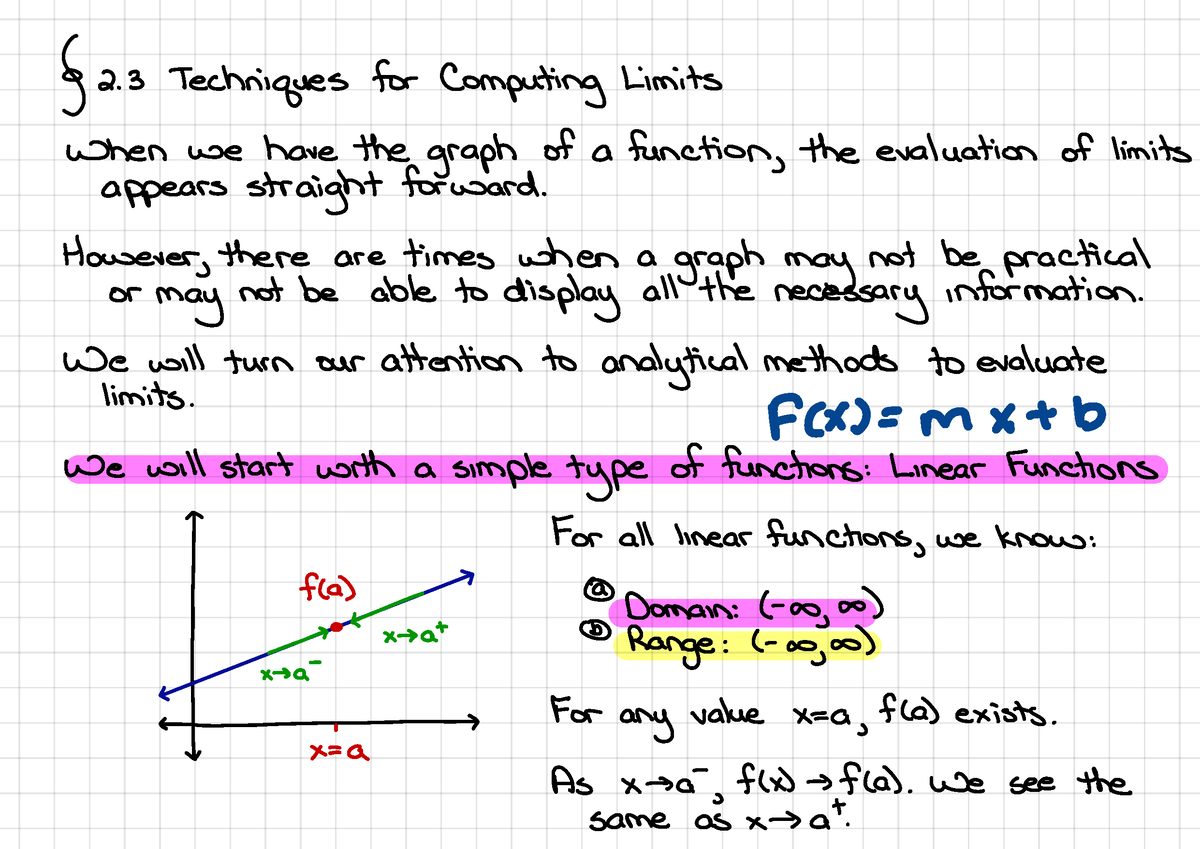 § 2.3 Techniques for Computing Limits
When we have the graph of a function, the evaluation of limits
appears straight forward.
However, there are times when a graph may not be practical
or may not be able to display all the necessary information.
We will turn our attention to analytical methods to evaluate
limits.
F(x) = mx + b
We will start with a simple type of functions: Linear Functions
For all linear functions, we know:
ⓐ Domain: (-∞, ∞)
ⓑ Range: (-∞, ∞)
f(a)
x→a⁺
x→a⁻
x=a
For any value x=a, f(a) exists.
As x→a⁻, f(x)→f(a). We see the
same as x→a⁺.